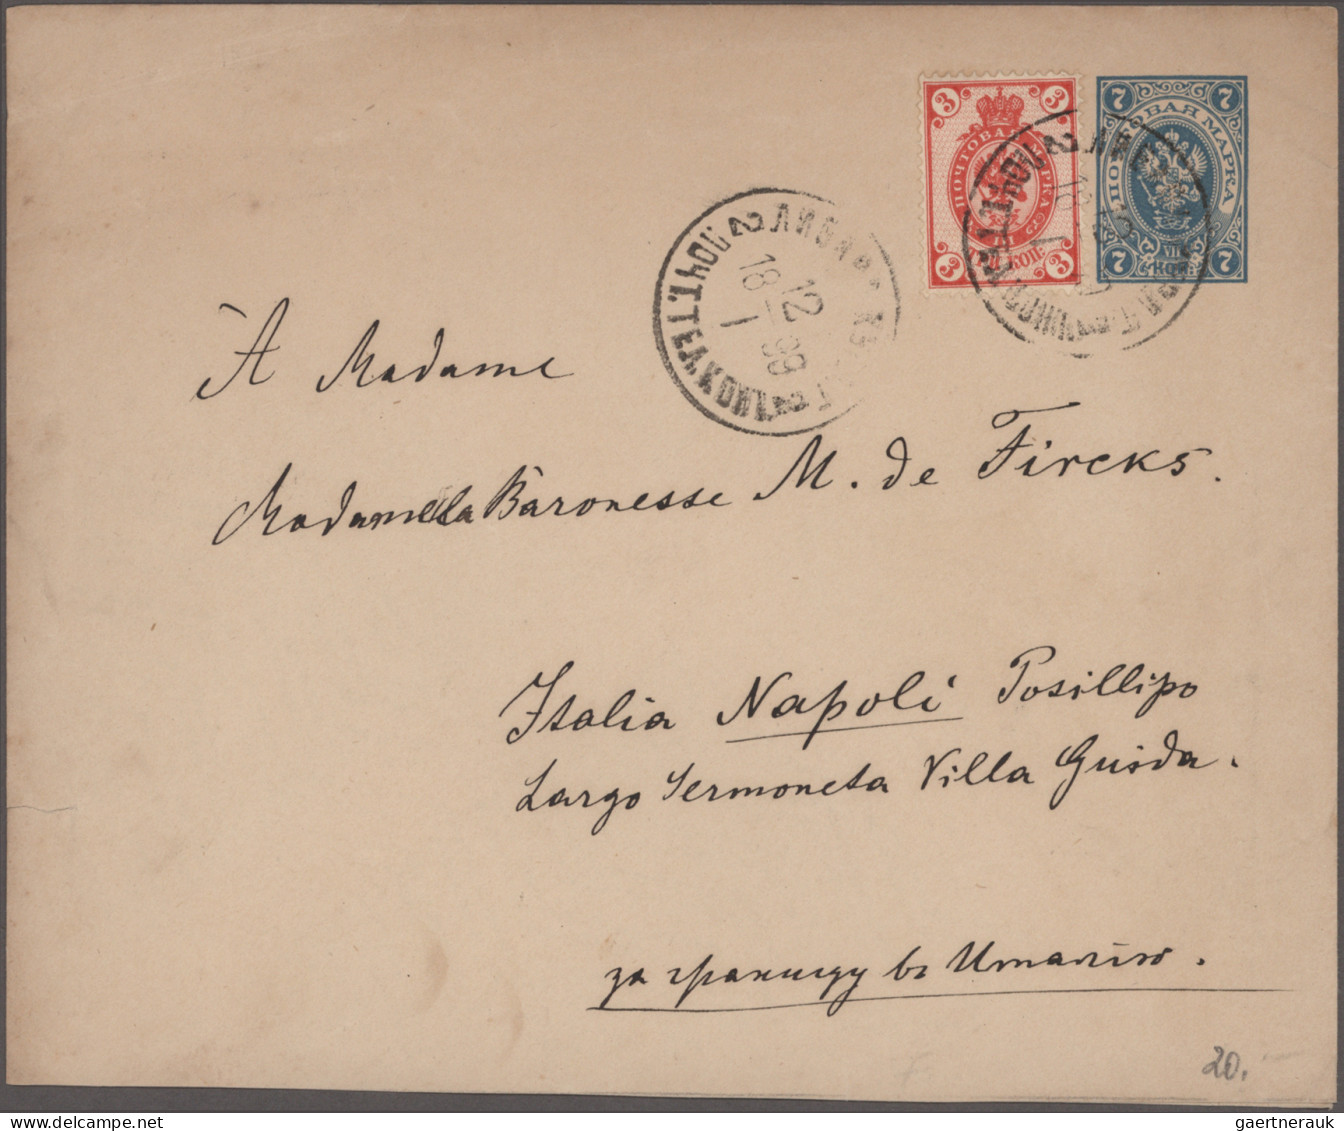 3 3
ПОЧТОВАЯ МАРКА
3 КОП. 3
7 7
ПОЧТОВАЯ МАРКА
VII
7 КОП. 7
2 ЛИБАВА
12
18 99
I
ПОЧТ. ТЕЛ. КОНТ.
À Madame
Madame la Baronesse M. de Fircks.
Italia Napoli Posillipo
Largo Sermoneta Villa Guida.
за границу въ Италію.
20.
gaertnerauk